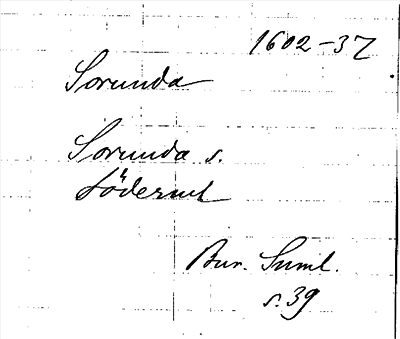 1602-37
Sorunda
Sorunda s.
Söderml
Bur. Suml.
s. 39